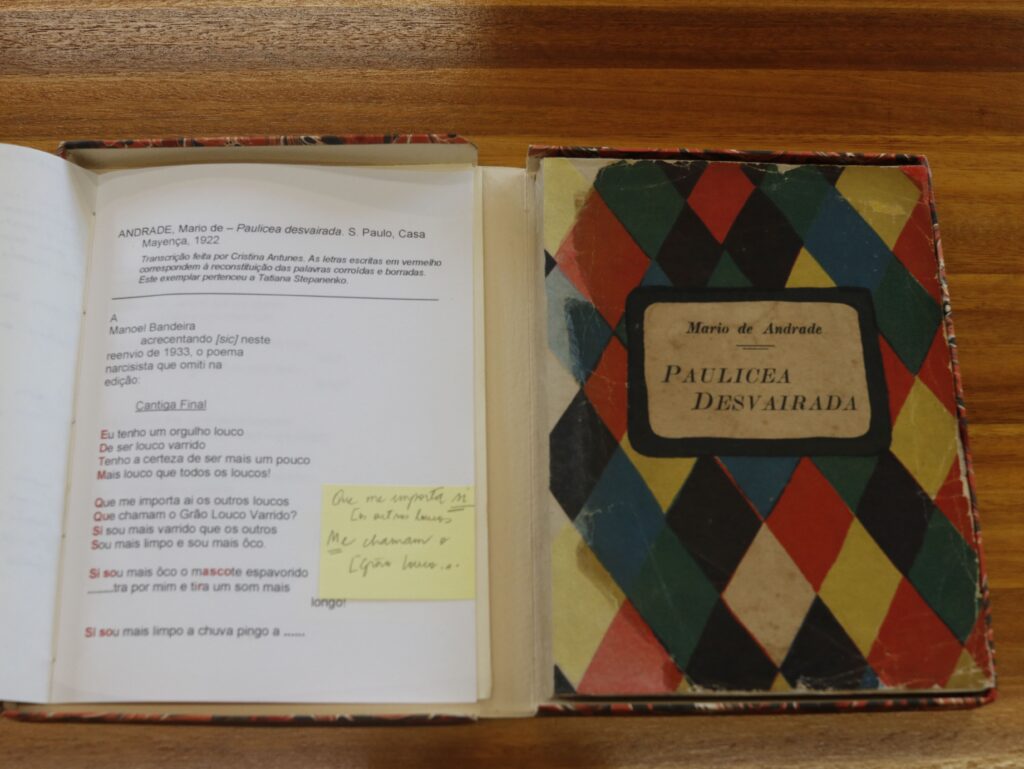 ANDRADE, Mario de – Paulicea desvairada. S. Paulo, Casa
Mayença, 1922
Transcrição feita por Cristina Antunes. As letras escritas em vermelho
correspondem à reconstituição das palavras corroídas e borradas.
Este exemplar pertenceu a Tatiana Stepanenko.
A
Manoel Bandeira
acrecentando [sic] neste
reenvio de 1933, o poema
narcisista que omiti na
edição:
Cantiga Final
Eu tenho um orgulho louco
De ser louco varrido
Tenho a certeza de ser mais um pouco
Mais louco que todos os loucos!
Que me importa ai os outros loucos
Que chamam o Grão Louco Varrido?
Si sou mais varrido que os outros
Sou mais limpo e sou mais ôco.
Si sou mais ôco o mascote espavorido
........tra por mim e tira um som mais
longo!
Si sou mais limpo a chuva pingo a ......
Que me importa si
[os outros loucos
Me chamam o
[Grão louco...
Mario de Andrade
PAULICEA
DESVAIRADA